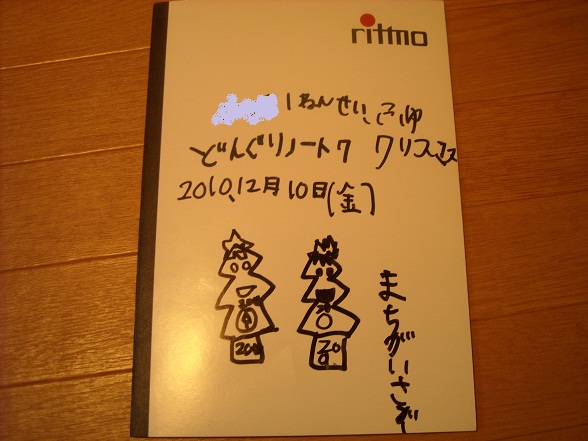 ritmo
1ねんせい、ふゆ
どんぐりノート7 クリスマス
2010.12月10日(金)
まちがいさがし